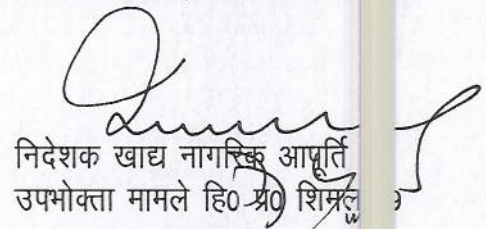 निदेशक खाद्य नागरिक आपूर्ति
उपभोक्ता मामले हि0 प्र0